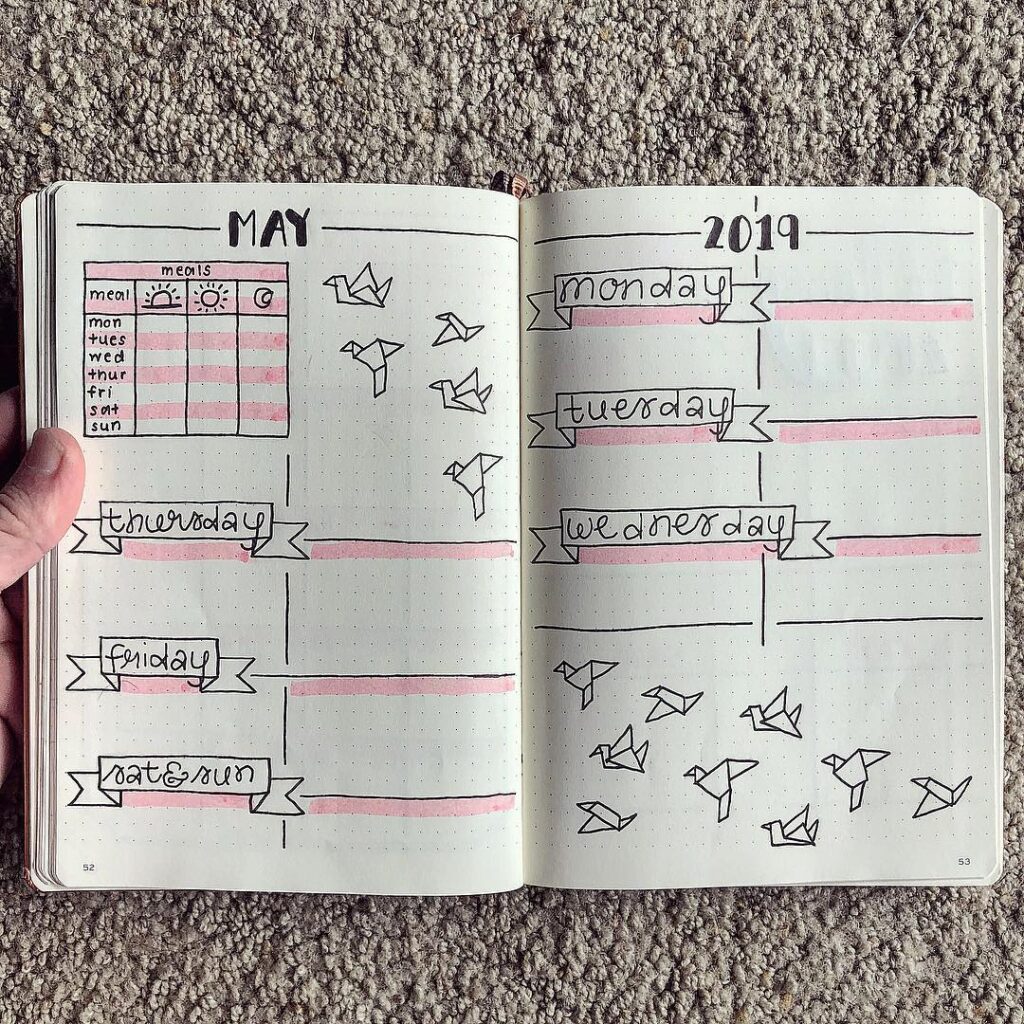 MAY
meals
meal
mon
tues
wed
thur
fri
sat
sun
thursday
friday
sat&sun
52
2019
monday
tuesday
wednesday
53